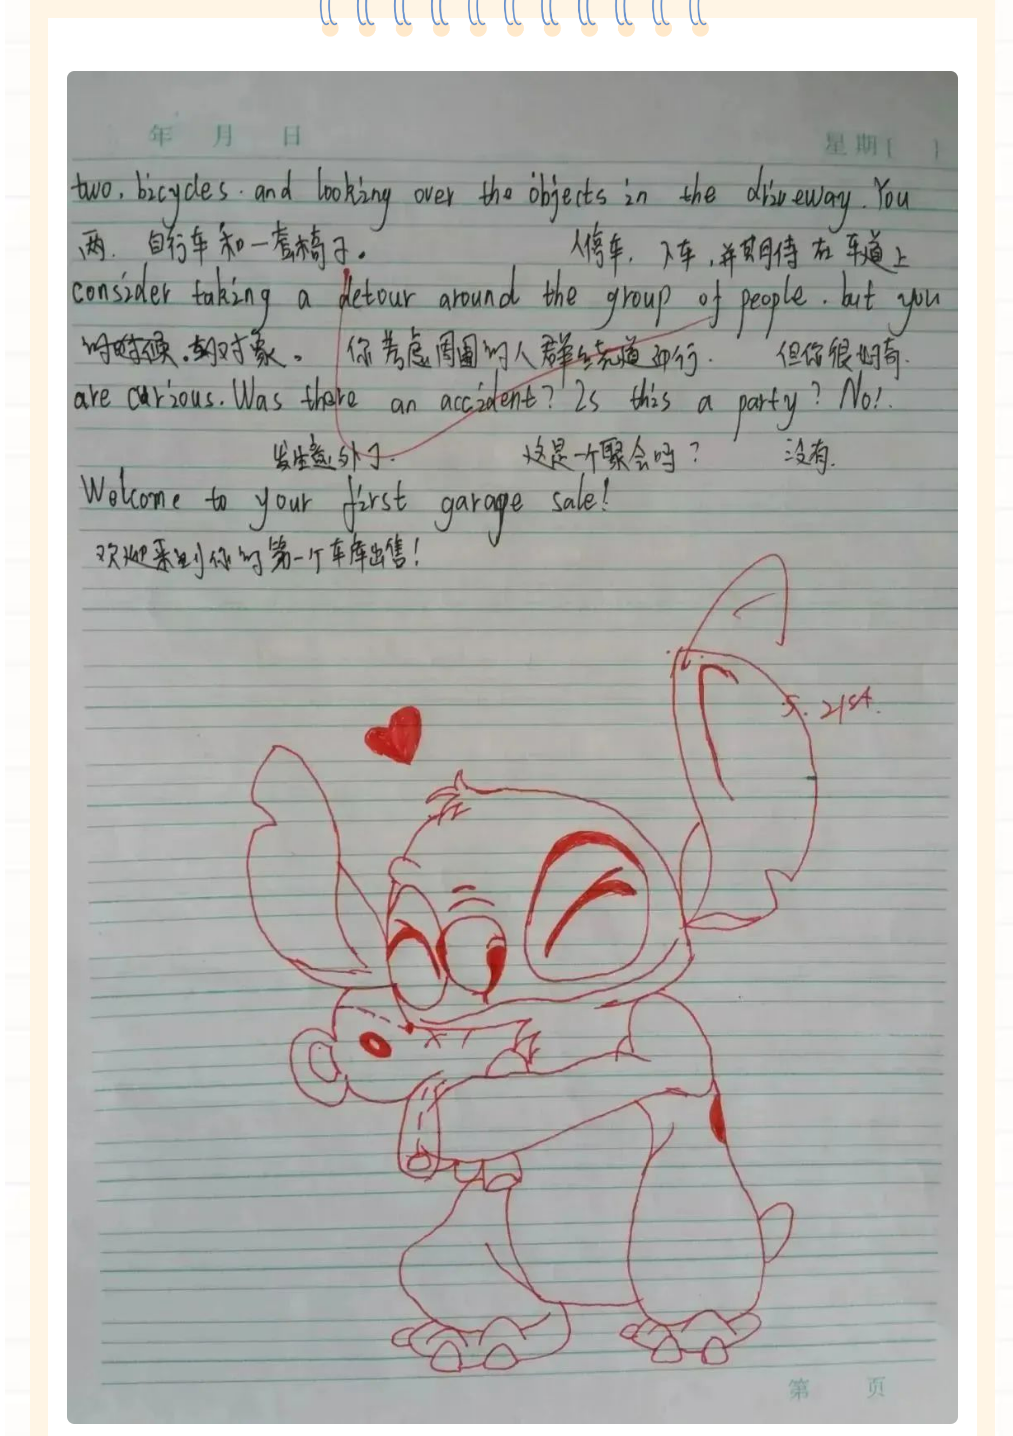 年 月 日 星期[ ]
two. bicycles. and looking over the objects in the driveway. You
两. 自行车和一套椅子。 人停车, 下车,并期待在车道上
consider taking a detour around the group of people. but you
的时候. 对象。 你考虑周围的人群绕道而行. 但你很好奇.
are curious. Was there an accident? Is this a party? No!.
发生意外了. 这是一个聚会吗? 没有.
Welcome to your first garage sale!
欢迎来到你的第一个车库出售!
5. 21st.
第 页